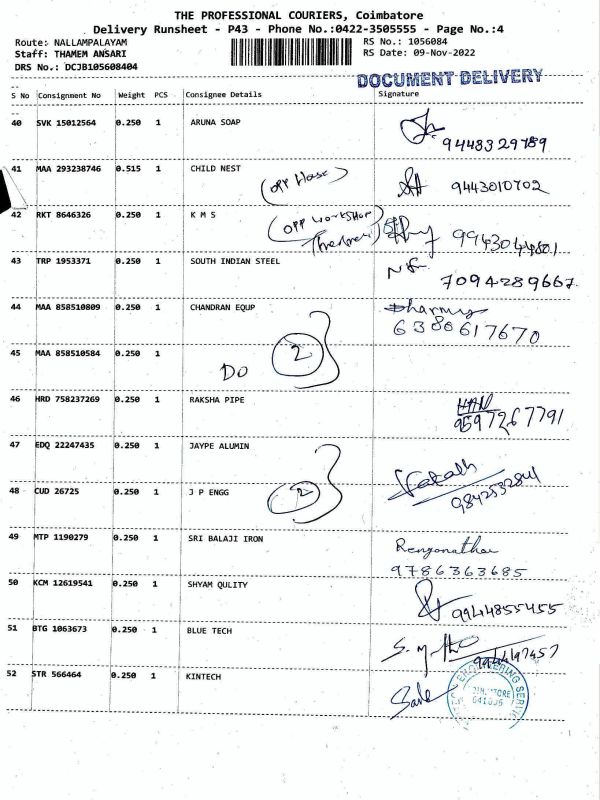 THE PROFESSIONAL COURIERS, Coimbatore
Delivery Runsheet - P43 - Phone No.:0422-3505555 - Page No.:4
Route: NALLAMPALAYAM RS No.: 1056084
Staff: THAMEM ANSARI RS Date: 09-Nov-2022
DRS No.: DCJB105608404
DOCUMENT DELIVERY
S No Consignment No Weight PCS Consignee Details Signature
40 SVK 15012564 0.250 1 ARUNA SOAP
9448329789
41 MAA 293238746 0.515 1 CHILD NEST
(OPP House) 9443010702
42 RKT 8646326 0.250 1 K M S
(OPP WORKSHOP
43 TRP 1953371 0.250 1 SOUTH INDIAN STEEL
7094289667
44 MAA 858510809 0.250 1 CHANDRAN EQUP
6380617670
45 MAA 858510584 0.250 1
DO 2
46 HRD 758237269 0.250 1 RAKSHA PIPE
9597267791
47 EDQ 22247435 0.250 1 JAYPE ALUMIN
48 CUD 26725 0.250 1 J P ENGG
2
49 MTP 1190279 0.250 1 SRI BALAJI IRON
Renganathan
9786363685
50 KCM 12619541 0.250 1 SHYAM QULITY
9944855455
51 BTG 1063673 0.250 1 BLUE TECH
52 STR 566464 0.250 1 KINTECH